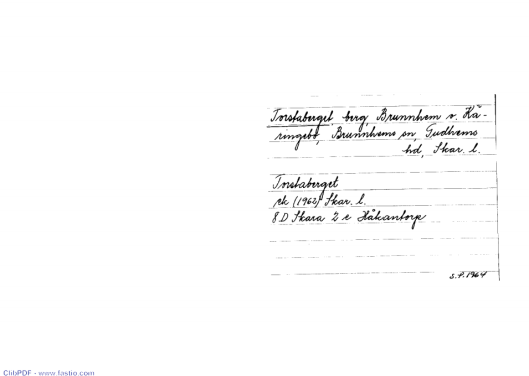 Torstaberget berg, Brunnhem v. Kä-
ringebo, Brunnhems sn, Gudhems
hd, Skar. l.
Torstaberget
ek (1962) Skar. l.
8D Skara 2 e Håkantorp
S.F. 1964
ClibPDF - www.fastio.com